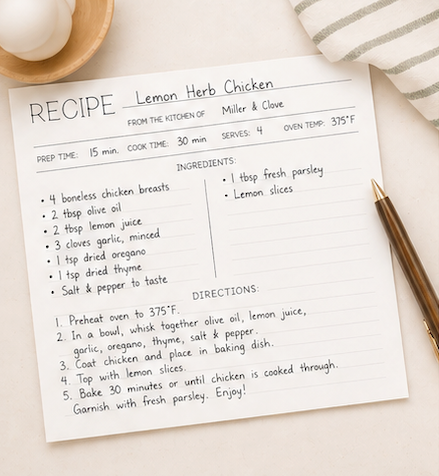 RECIPE Lemon Herb Chicken
FROM THE KITCHEN OF Miller & Clove
PREP TIME: 15 min. COOK TIME: 30 min SERVES: 4 OVEN TEMP: 375°F
INGREDIENTS:
• 4 boneless chicken breasts
• 2 tbsp olive oil
• 2 tbsp lemon juice
• 3 cloves garlic, minced
• 1 tsp dried oregano
• 1 tsp dried thyme
• Salt & pepper to taste
• 1 tbsp fresh parsley
• Lemon slices
DIRECTIONS:
1. Preheat oven to 375°F.
2. In a bowl, whisk together olive oil, lemon juice,
garlic, oregano, thyme, salt & pepper.
3. Coat chicken and place in baking dish.
4. Top with lemon slices.
5. Bake 30 minutes or until chicken is cooked through.
Garnish with fresh parsley. Enjoy!